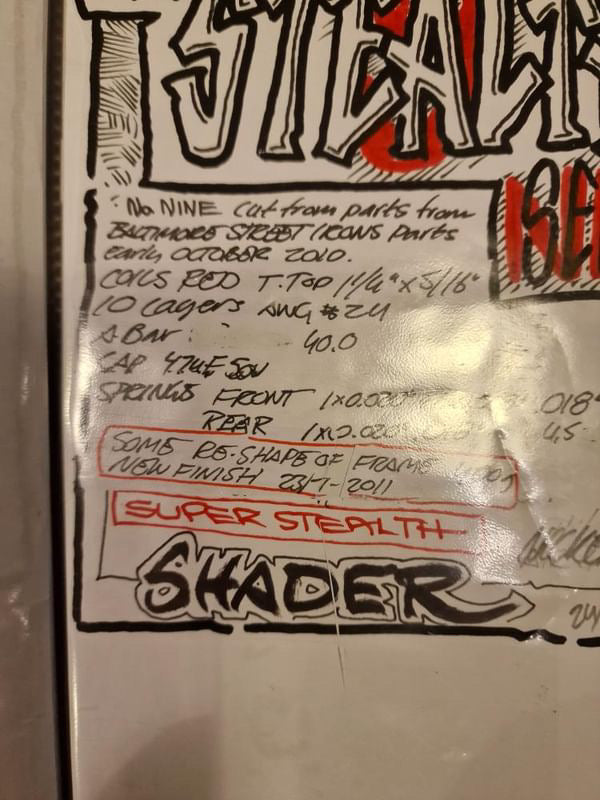 STEALT
SE
No NINE Cut from parts from
BALTIMORE STREET IRONS parts
early OCTOBER 2010.
COILS RED T.TOP 1 1/4" x 5/16"
10 Layers AWG #24
A Bar: 40.0
CAP 47uF 50v
SPRINGS FRONT 1x0.020" .018"
REAR 1x0.020" 45
SOME RE-SHAPE OF FRAME
NEW FINISH 23/7-2011
SUPER STEALTH
SHADER